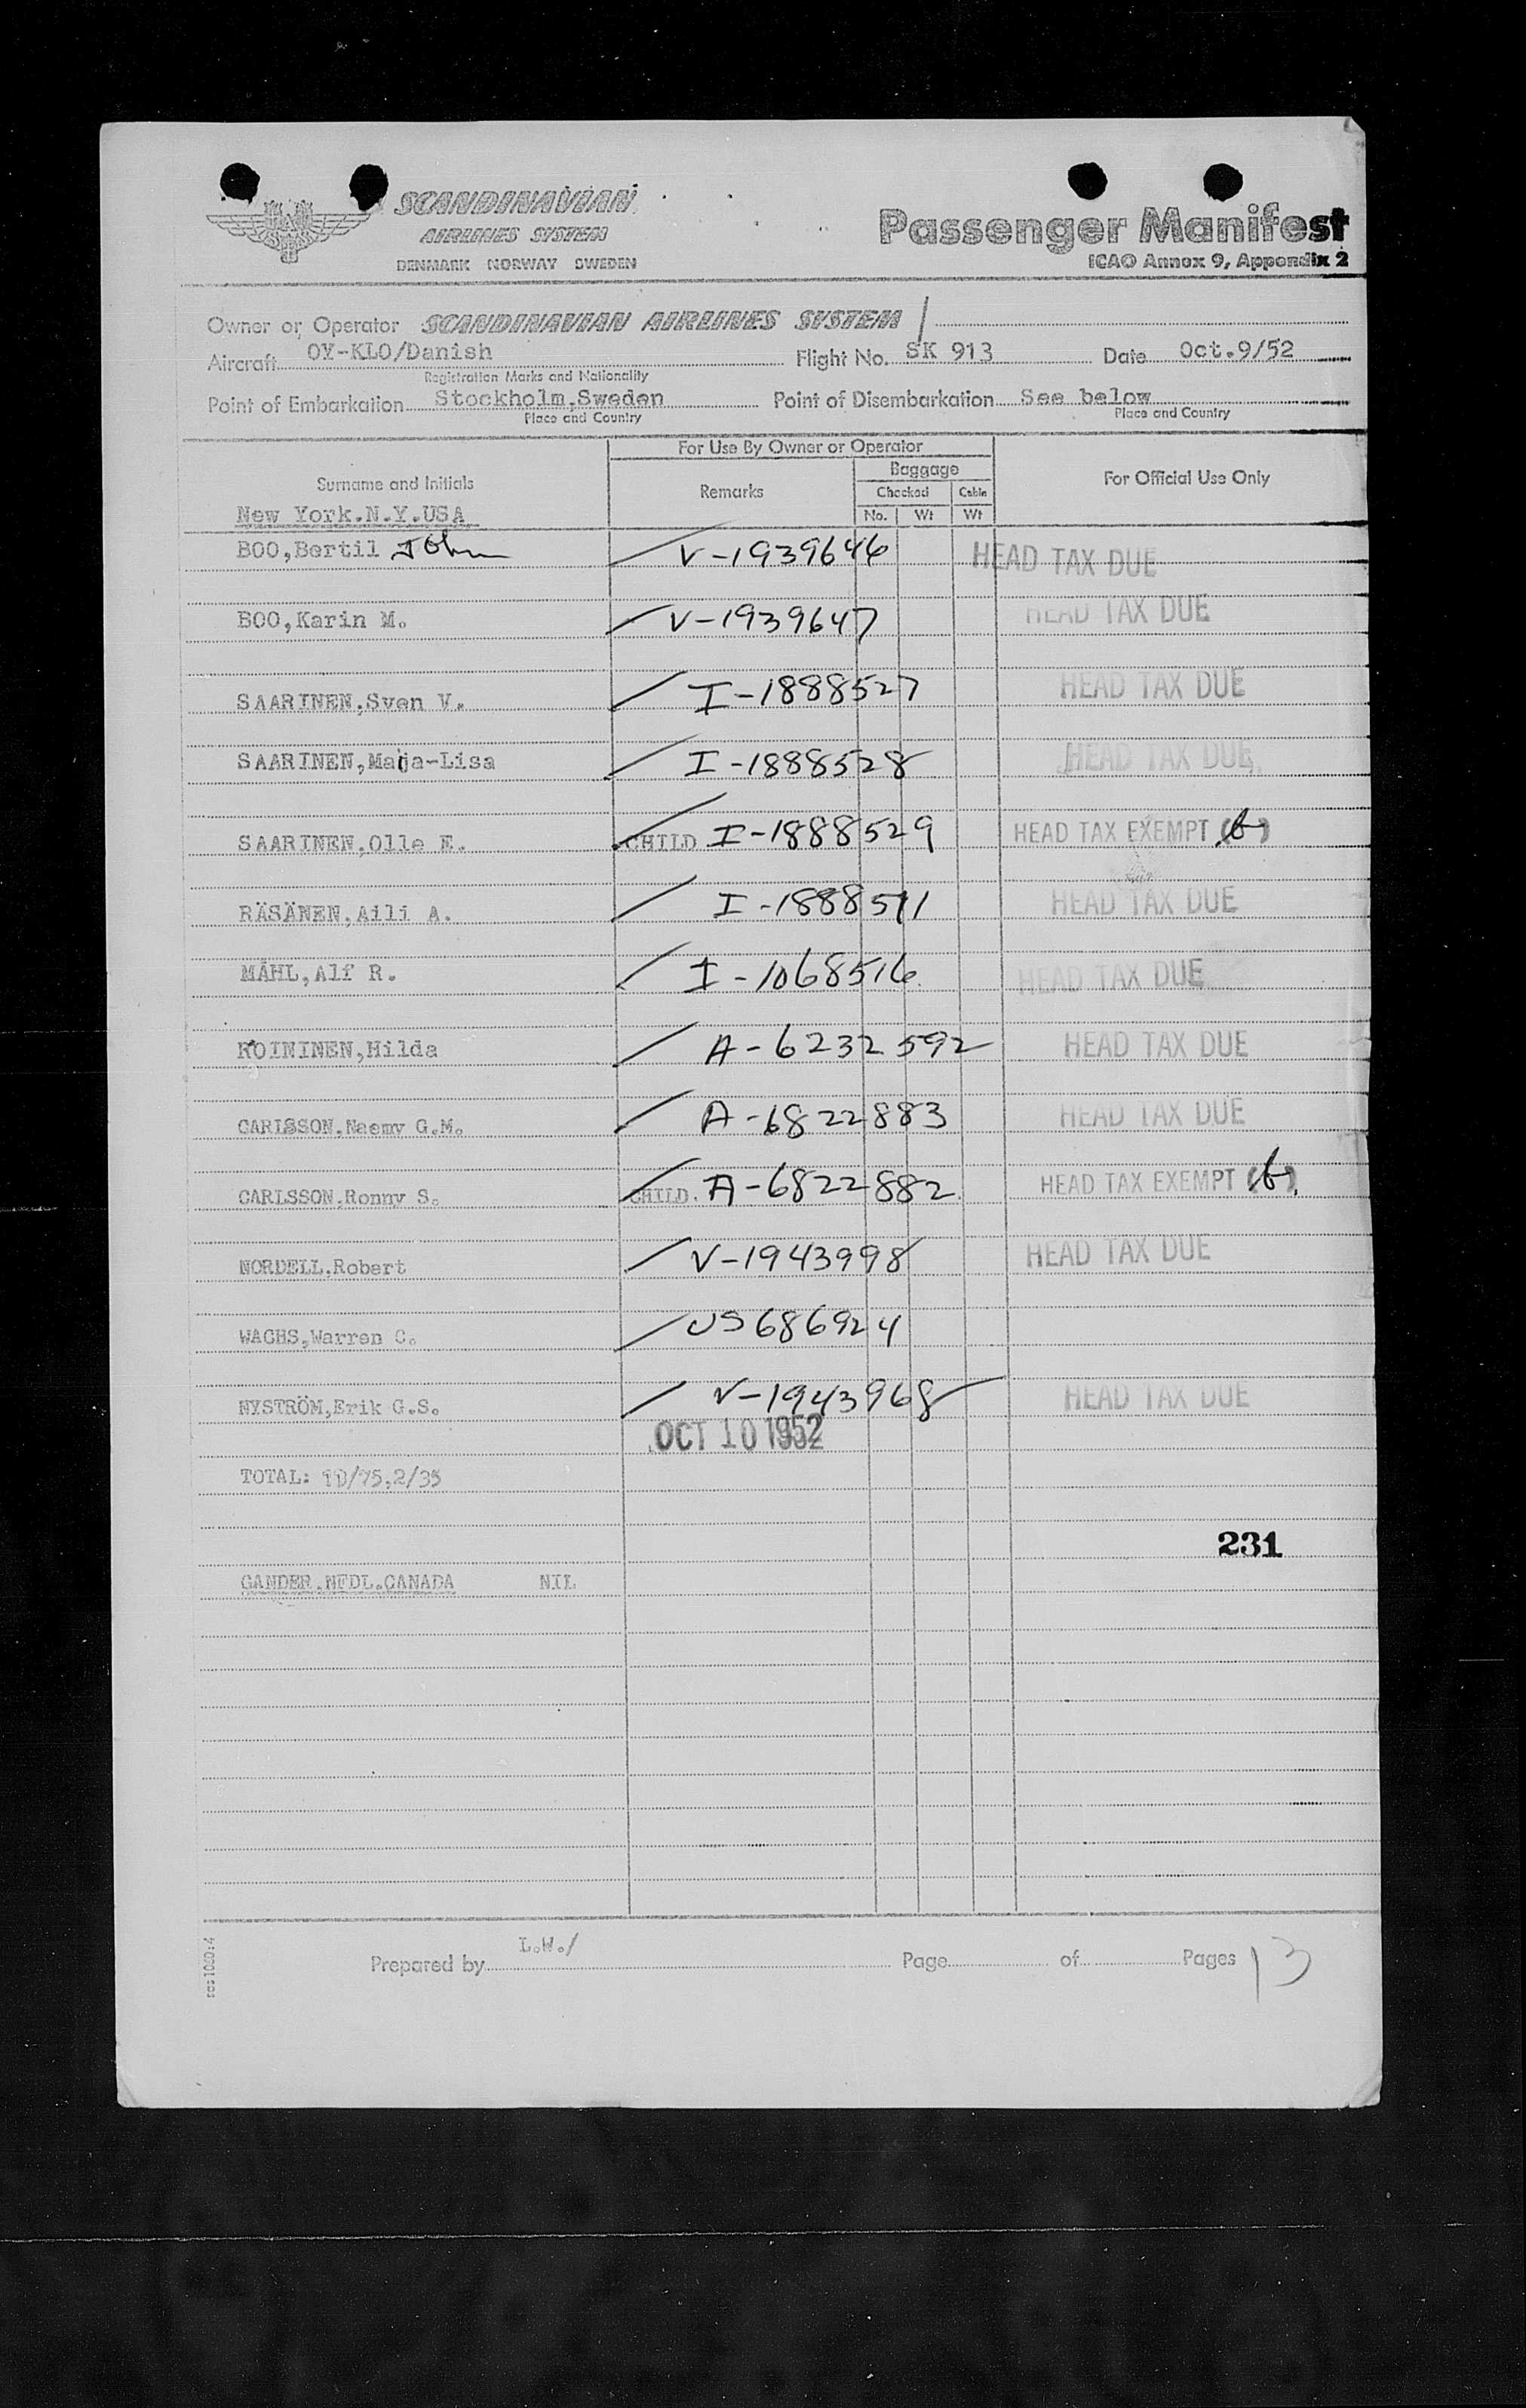 SCANDINAVIAN
AIRLINES SYSTEM
DENMARK NORWAY SWEDEN
Passenger Manifest
ICAO Annex 9, Appendix 2
Owner or Operator SCANDINAVIAN AIRLINES SYSTEM /
Aircraft OY-KLO/Danish Flight No. SK 913 Date Oct.9/52
Registration Marks and Nationality
Point of Embarkation Stockholm,Sweden Point of Disembarkation See below
Place and Country Place and Country
For Use By Owner or Operator
Surname and Initials Remarks Baggage For Official Use Only
Checked Cabin
No. Wt Wt
New York.N.Y.USA
BOO,Bertil John V-1939646 HEAD TAX DUE
BOO,Karin M. V-1939647 HEAD TAX DUE
SAARINEN,Sven V. I-1888527 HEAD TAX DUE
SAARINEN,Maja-Lisa I-1888528 HEAD TAX DUE
SAARINEN,Olle E. CHILD I-1888529 HEAD TAX EXEMPT (b)
RÄSÄNEN,Aili A. I-1888511 HEAD TAX DUE
MÅHL,Alf R. I-1068516 HEAD TAX DUE
KOININEN,Hilda A-6232592 HEAD TAX DUE
CARLSSON.Naemy G.M. A-6822883 HEAD TAX DUE
CARLSSON.Ronny S. CHILD. A-6822882 HEAD TAX EXEMPT (b)
NORDELL,Robert V-1943998 HEAD TAX DUE
WACHS,Warren C. US 686924
NYSTRÖM,Erik G.S. V-1943968 HEAD TAX DUE
OCT 10 1952
TOTAL: 10/75,2/35
231
GANDER.NFDL.CANADA NIL
Prepared by L.W./ Page of Pages 13